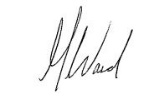 M Ward